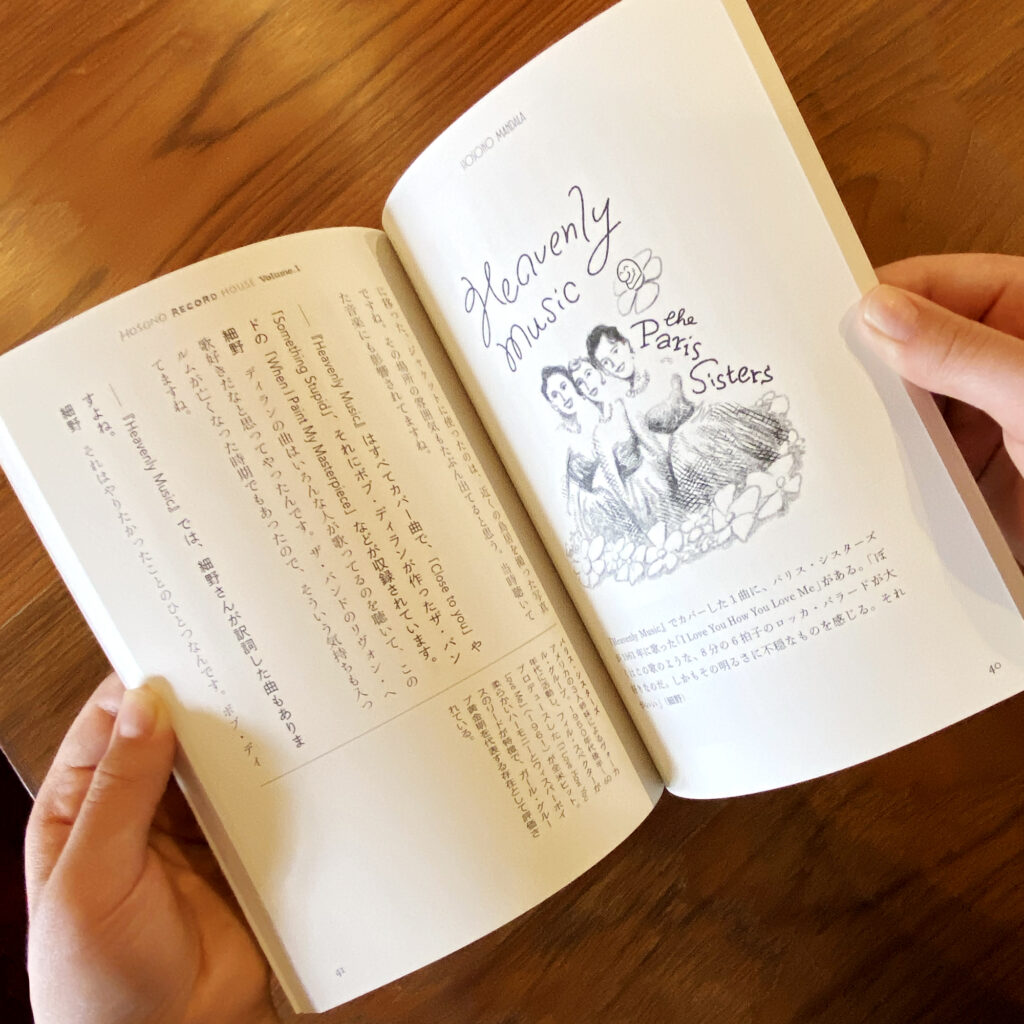 HOSONO MANDALA
Heavenly
music
the
Paris
Sisters
『Heavenly Music』でカバーした1曲に、パリス・シスターズ
が1961年に歌った「I Love You How You Love Me」がある。「ぼ
くはこの歌のような、8分の6拍子のロッカ・バラードが大
好きなのだ。しかもその明るさに不穏なものを感じる。それ
がいい」（細野）
40
HOSONO RECORD HOUSE Volume.1
に移った。ジャケットに使ったのは、近くの鳥居を撮った写真
ですね。その場所の雰囲気もたぶん出てると思う。当時聴いて
た音楽にも影響されてますね。
――『Heavenly Music』はすべてカバー曲で、「Close to You」や
「Something Stupid」、それにボブ・ディランが作ったザ・バン
ドの「When I Paint My Masterpiece」などが収録されています。
細野 ディランの曲はいろんな人が歌ってるのを聴いて、この
歌好きだなと思ってやったんです。ザ・バンドのリヴォン・ヘ
ルムが亡くなった時期でもあったので、そういう気持ちも入っ
てますね。
――『Heavenly Music』では、細野さんが訳詞した曲もありま
すよね。
細野 それはやりたかったことのひとつなんです。ボブ・ディ
パリス・シスターズ
アメリカの3姉妹によるヴォーカ
ル・グループ。1950年代後半〜60
年代に活動し、フィル・スペクターが
プロデュースした「I Love How You
Love Me」（1961）が全米ヒット。
柔らかいハーモニーとウィスパーボイ
スのリードが特徴で、ガール・グルー
プ黄金期を代表する存在として評価さ
れている。
41